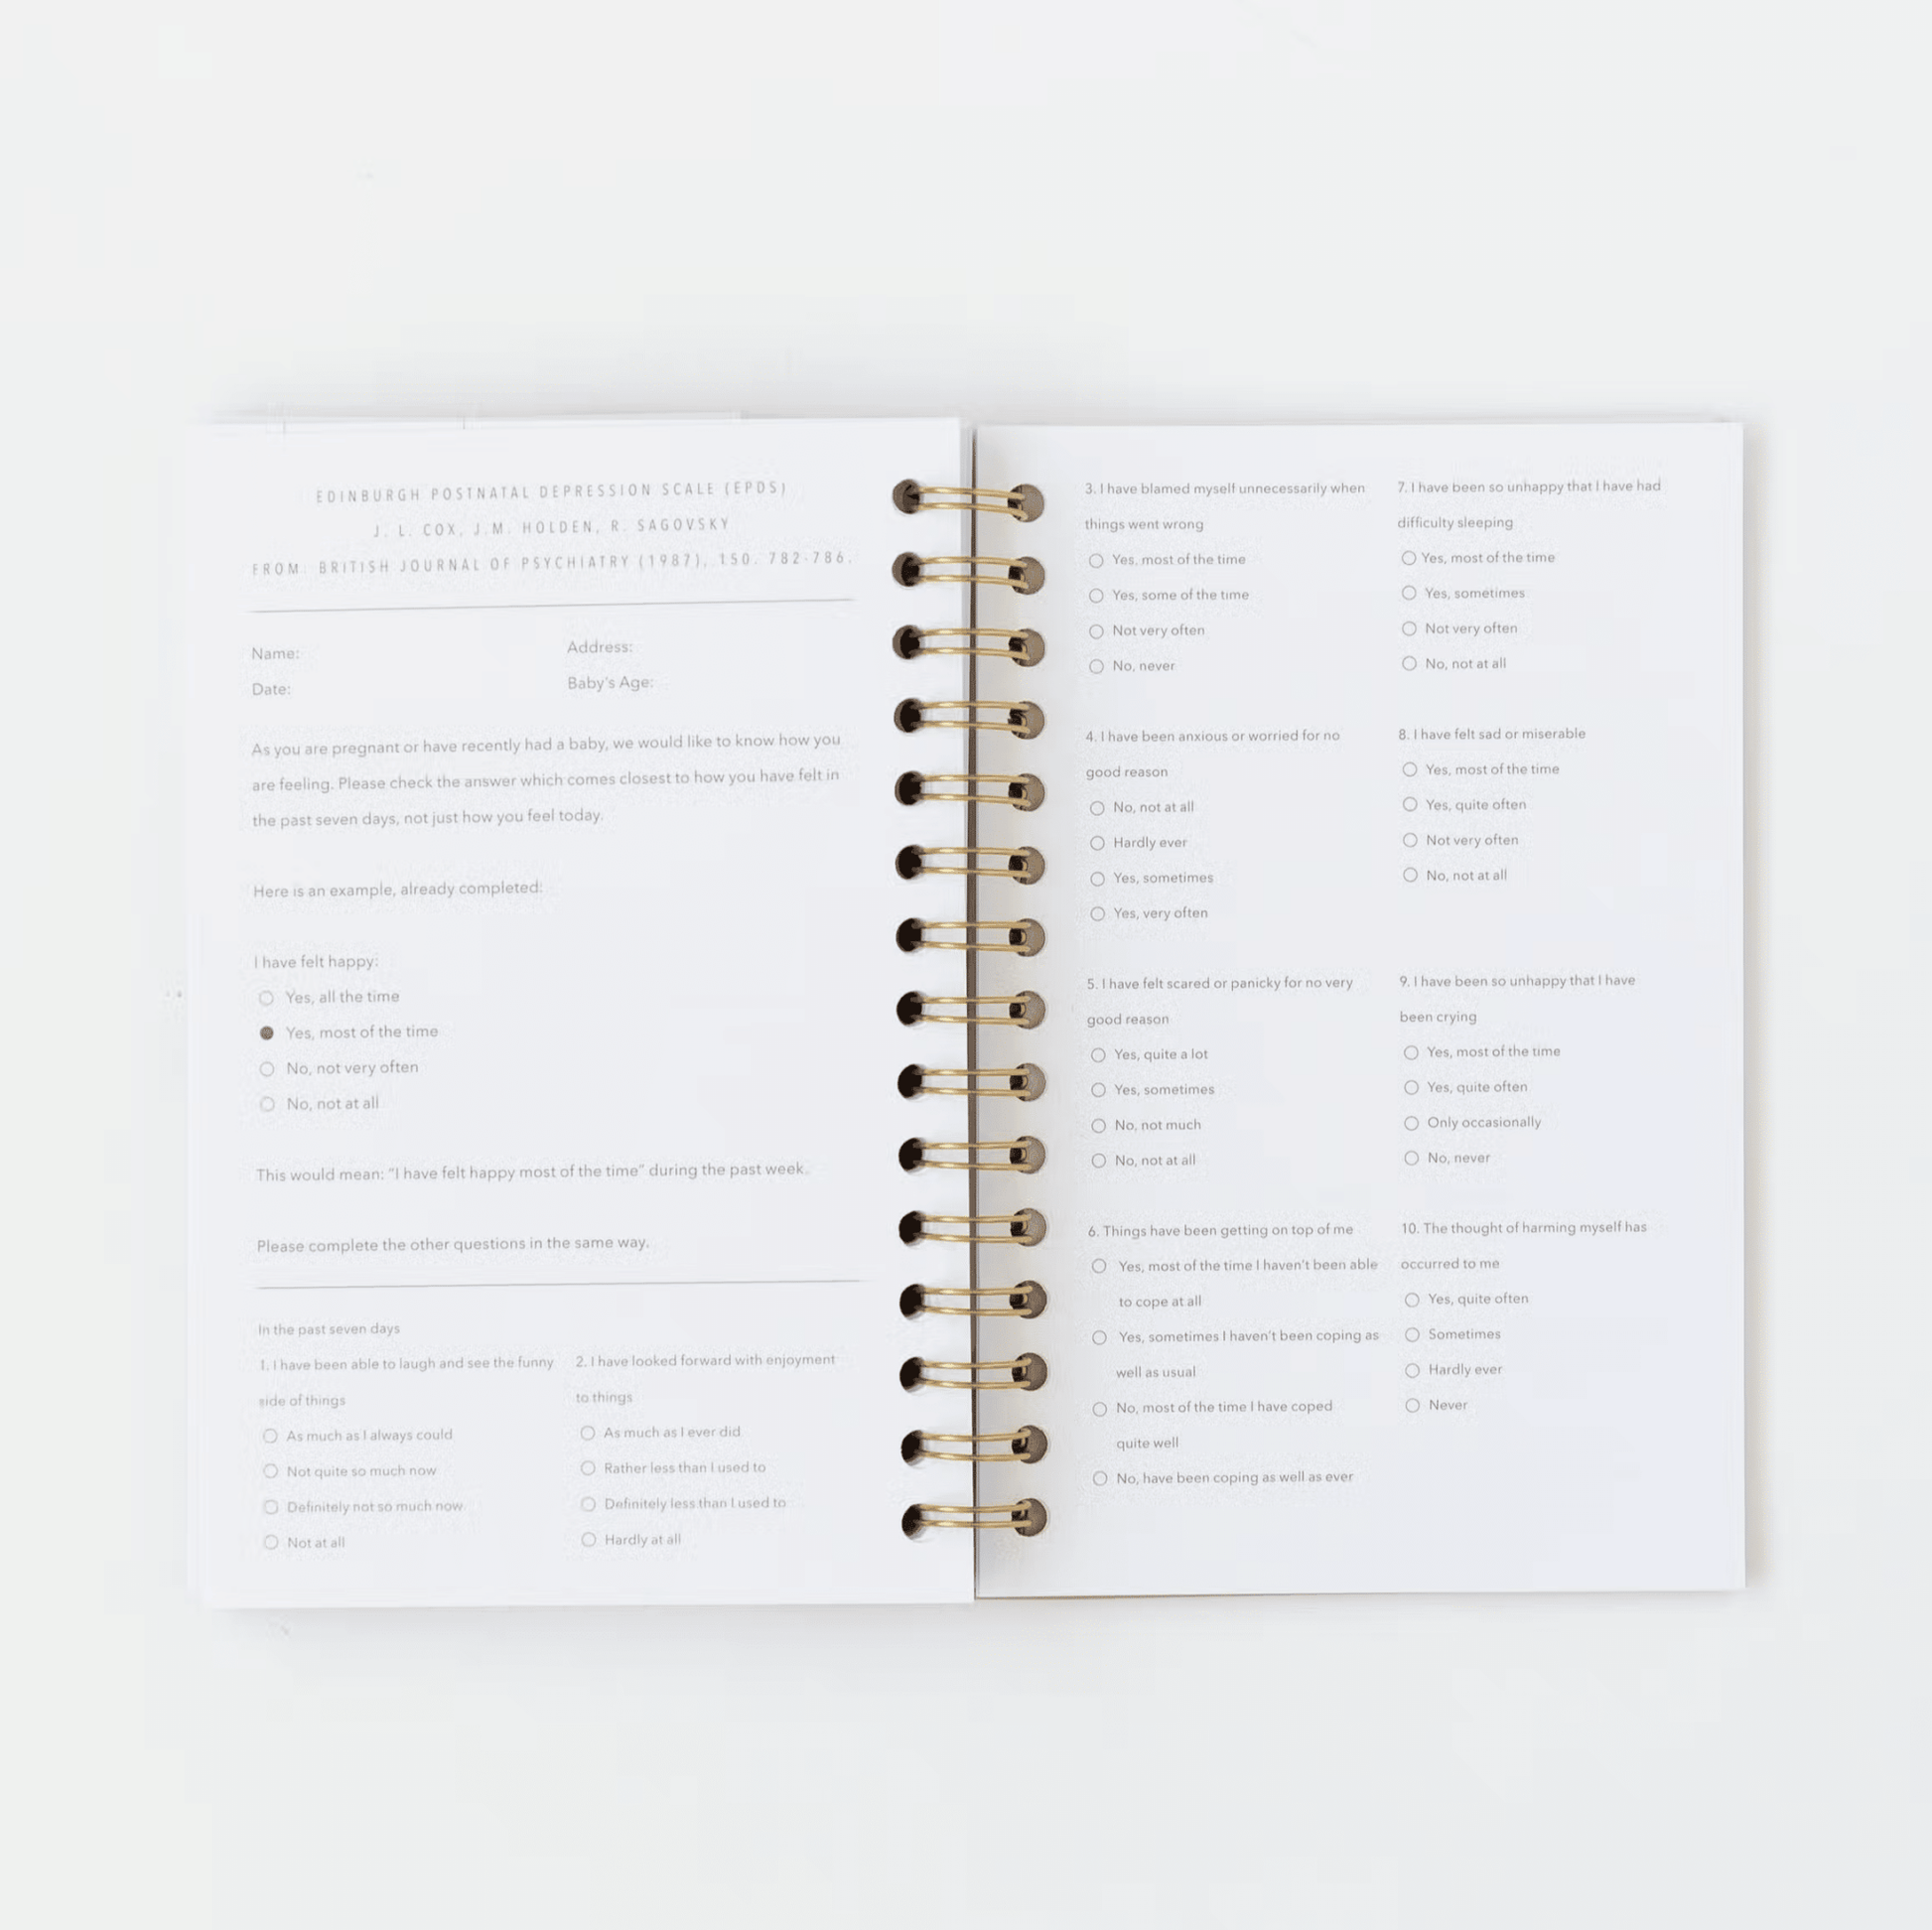 EDINBURGH POSTNATAL DEPRESSION SCALE (EPDS)
J. L. COX, J.M. HOLDEN, R. SAGOVSKY
FROM: BRITISH JOURNAL OF PSYCHIATRY (1987), 150. 782-786.
Name:
Address:
Date:
Baby's Age:
As you are pregnant or have recently had a baby, we would like to know how you
are feeling. Please check the answer which comes closest to how you have felt in
the past seven days, not just how you feel today.
Here is an example, already completed:
I have felt happy:
Yes, all the time
Yes, most of the time
No, not very often
No, not at all
This would mean: "I have felt happy most of the time" during the past week.
Please complete the other questions in the same way.
In the past seven days
1. I have been able to laugh and see the funny
side of things
As much as I always could
Not quite so much now
Definitely not so much now
Not at all
2. I have looked forward with enjoyment
to things
As much as I ever did
Rather less than I used to
Definitely less than I used to
Hardly at all
3. I have blamed myself unnecessarily when
things went wrong
Yes, most of the time
Yes, some of the time
Not very often
No, never
4. I have been anxious or worried for no
good reason
No, not at all
Hardly ever
Yes, sometimes
Yes, very often
5. I have felt scared or panicky for no very
good reason
Yes, quite a lot
Yes, sometimes
No, not much
No, not at all
6. Things have been getting on top of me
Yes, most of the time I haven't been able
to cope at all
Yes, sometimes I haven't been coping as
well as usual
No, most of the time I have coped
quite well
No, have been coping as well as ever
7. I have been so unhappy that I have had
difficulty sleeping
Yes, most of the time
Yes, sometimes
Not very often
No, not at all
8. I have felt sad or miserable
Yes, most of the time
Yes, quite often
Not very often
No, not at all
9. I have been so unhappy that I have
been crying
Yes, most of the time
Yes, quite often
Only occasionally
No, never
10. The thought of harming myself has
occurred to me
Yes, quite often
Sometimes
Hardly ever
Never